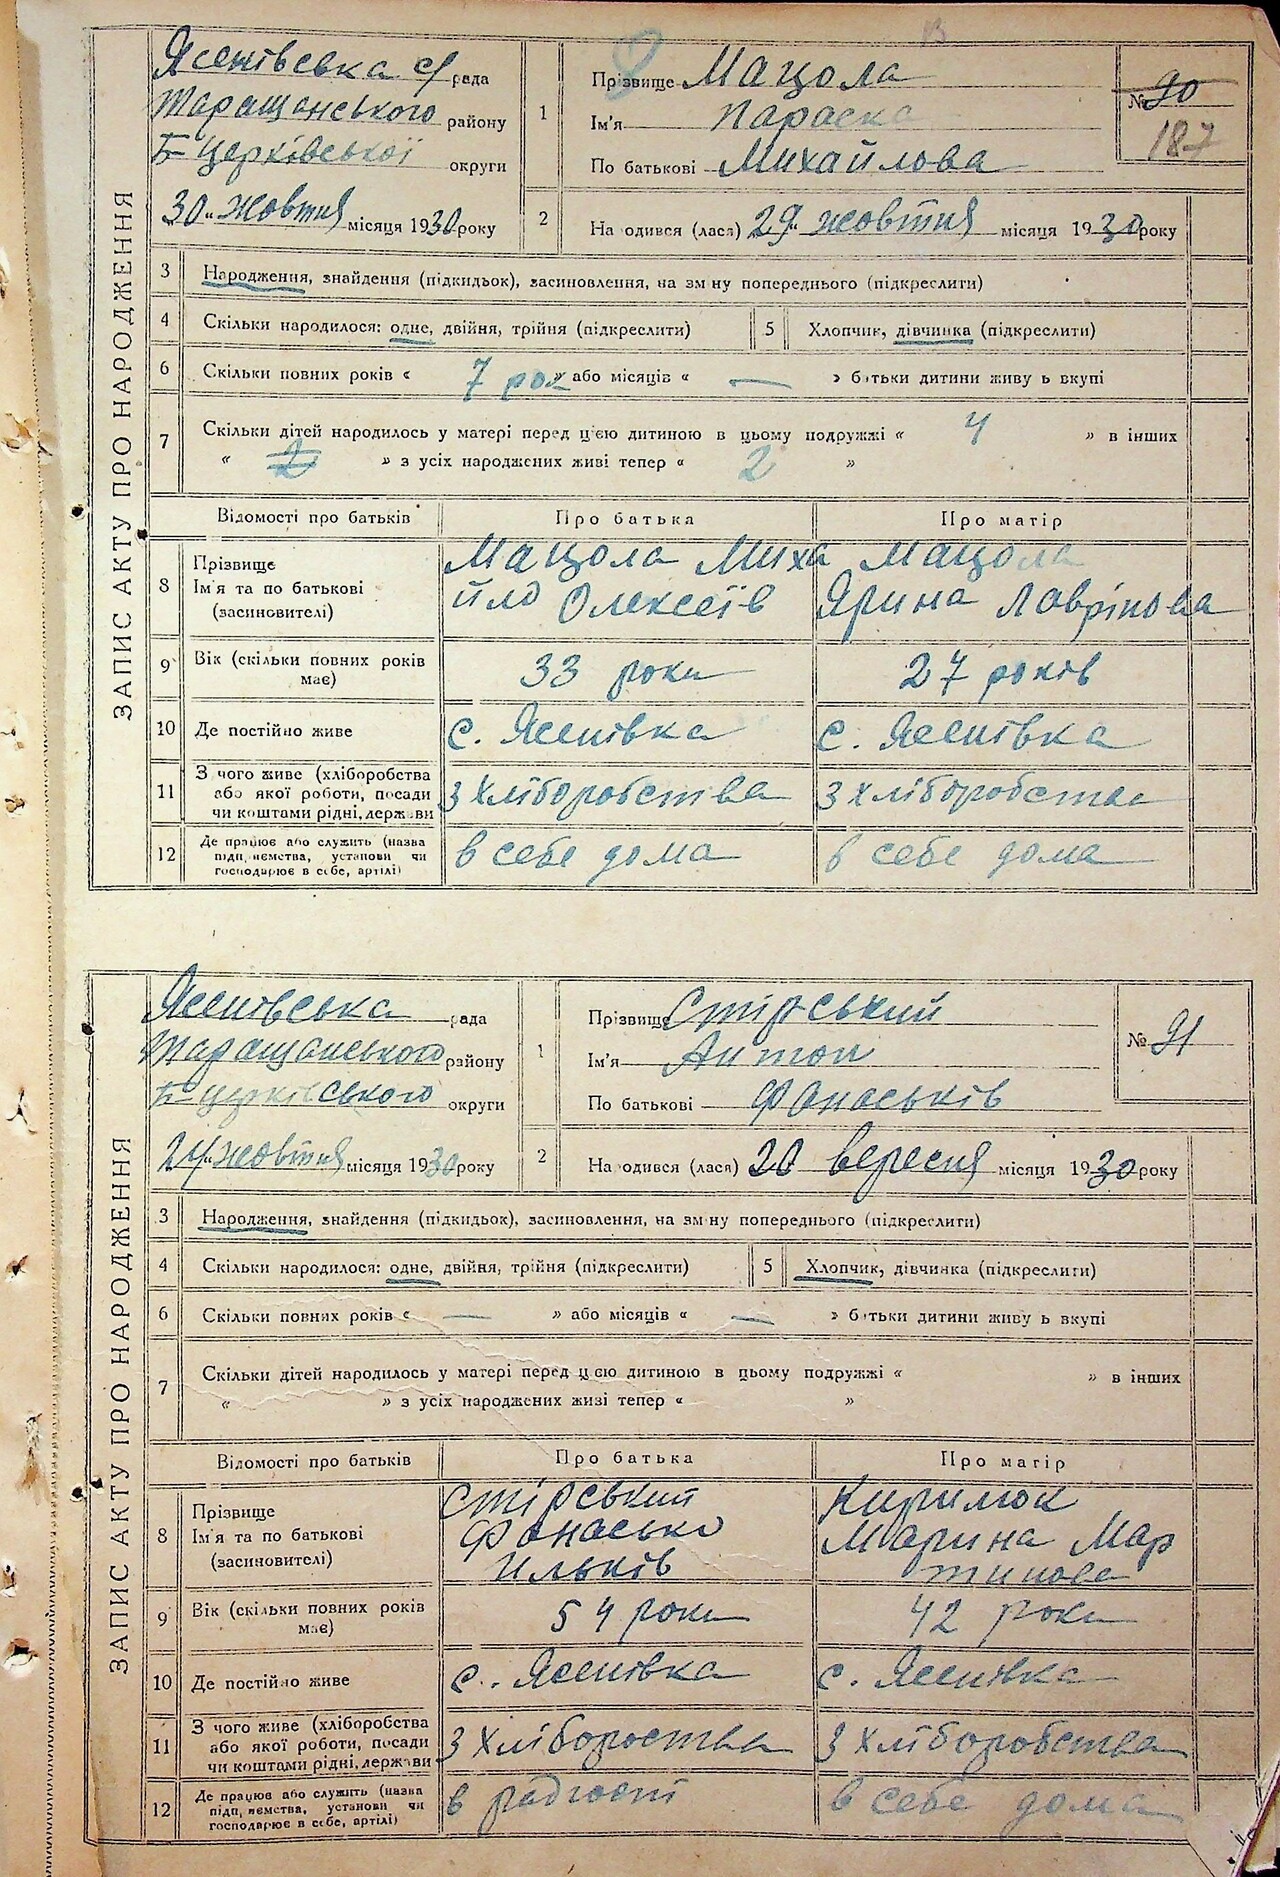 ЗАПИС АКТУ ПРО НАРОДЖЕННЯ
Ясенівська с/рада
Таращанського району
Б-церківської округи
"30" жовтня місяця 1930 року
1
Прізвище Мацола
Ім'я Параска
По батькові Михайлова
№ 90
187
2
Народився (лася) 29" жовтня місяця 1930 року
3 Народження, знайдення (підкидьок), засиновлення, на зміну попереднього (підкреслити)
4 Скільки народилося: одне, двійня, трійня (підкреслити) 5 Хлопчик, дівчинка (підкреслити)
6 Скільки повних років « 7 рок » або місяців « — » батьки дитини живуть вкупі
7 Скільки дітей народилось у матері перед цією дитиною в цьому подружжі « 4 » в інших
« 2 » з усіх народжених живі тепер « 2 »
Відомості про батьків Про батька Про матір
8 Прізвище Ім'я та по батькові (засиновителі)
Мацола Миха
йло Олексеїв
Мацола
Ярина Лаврінова
9 Вік (скільки повних років має) 33 роки 27 років
10 Де постійно живе с. Ясенівка с. Ясенівка
11 З чого живе (хліборобства або якої роботи, посади чи коштами рідні, держави
З хліборобства З хліборобства
12 Де працює або служить (назва підприємства, установи чи господарює в себе, артілі)
в себе дома в себе дома
ЗАПИС АКТУ ПРО НАРОДЖЕННЯ
Ясенівська рада
Таращанського району
Б-церківського округи
24" жовтня місяця 1930 року
1
Прізвище Стірський
Ім'я Антон
По батькові Фанаськів
№ 91
2
Народився (лася) 20 вересня місяця 1930 року
3 Народження, знайдення (підкидьок), засиновлення, на зміну попереднього (підкреслити)
4 Скільки народилося: одне, двійня, трійня (підкреслити) 5 Хлопчик, дівчинка (підкреслити)
6 Скільки повних років « — » або місяців « — » батьки дитини живуть вкупі
7 Скільки дітей народилось у матері перед цією дитиною в цьому подружжі « » в інших
« » з усіх народжених живі тепер « »
Відомості про батьків Про батька Про матір
8 Прізвище Ім'я та по батькові (засиновителі)
Стірський
Фанасько
Ильків
Киримок
Марина Мар
тинова
9 Вік (скільки повних років має) 54 роки 42 роки
10 Де постійно живе с. Ясенівка с. Ясенівка
11 З чого живе (хліборобства або якої роботи, посади чи коштами рідні, держави
З хлібороства З хліборобства
12 Де працює або служить (назва підприємства, установи чи господарює в себе, артілі)
в радгоспі в себе дома